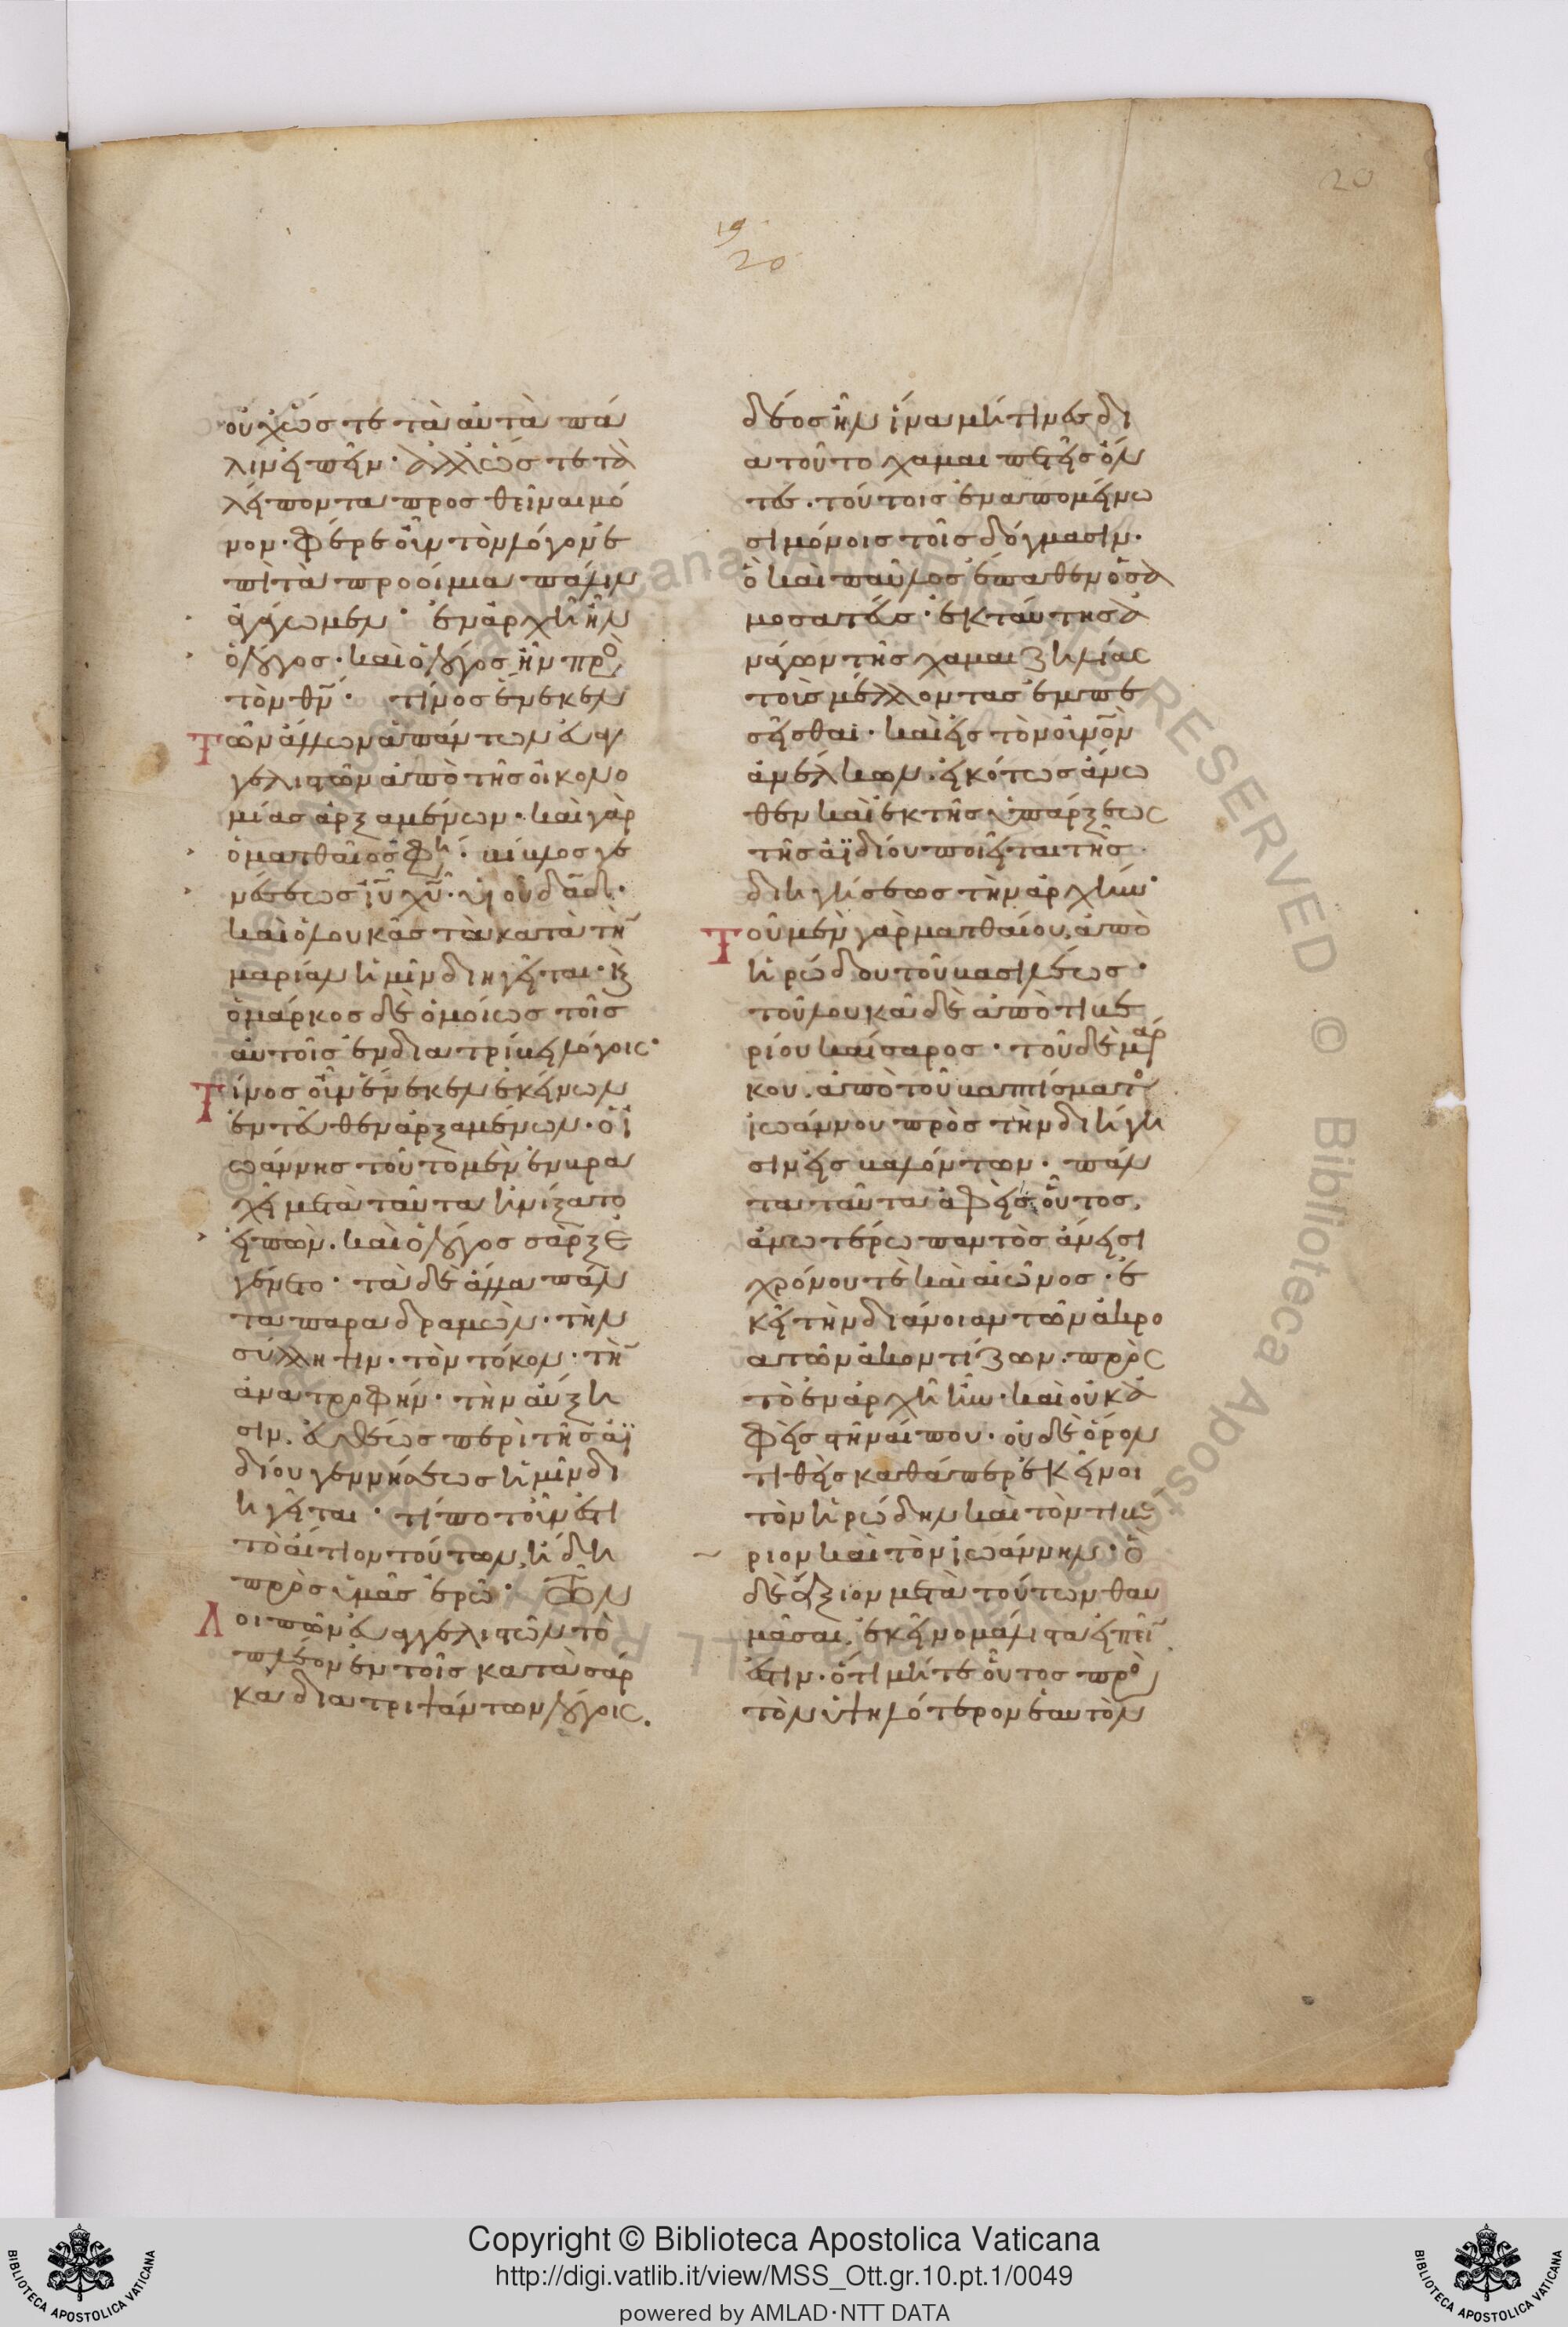 20
19
20
οὐχ ὥστε τὰ αὐτὰ πά
λιν εἰπεῖν· ἀλλ' ὥστε τὰ
λείποντα προσθεῖναι μό
νον· φέρε οὖν τὸν λόγον ἐ
πὶ τὰ προοίμια πάλιν
ἀγάγωμεν· ἐν ἀρχῆ ἦν
ὁ λόγος· καὶ ὁ λόγος ἦν πρὸ
τὸν θν· τίνος ἕνεκεν
Τῶν ἄλλων ἁπάντων εὐαγ
γελιστῶν ἀπὸ τῆς οἰκονο
μίας ἀρξαμένων· καὶ γὰρ
ὁ ματθαῖος φη· βίβλος γε
νέσεως ιυ χυ· υἱοῦ δαδ·
καὶ ὁ λουκᾶς τὰ κατὰ τὴ
μαρίαν ἡμῖν διηγεῖται· κ
ὁ μάρκος δὲ ὁμοίως τοῖς
αὐτοῖς ἐνδιατρίβει λόγοις·
Τίνος οὖν ἕνεκεν ἐκείνων
ἐντεῦθεν ἀρξαμένων· ὁ ἰ
ωάννης τοῦτο μὲν ἐν βρα
χεῖ μετὰ ταῦτα ἠνίξατο
εἰπών· καὶ ὁ λόγος σὰρξ ἐ
γένετο· τὰ δὲ ἄλλα πάν
τα παραδραμών· τὴν
σύλληψιν· τὸν τόκον· τὴ
ἀνατροφήν· τὴν αὔξη
σιν· εὐθέως περὶ τῆς ἀϊ
δίου γεννήσεως ἡμῖν δι
ηγεῖται· τί ποτ' οὖν ἐστι
τὸ αἴτιον τούτων, ἤδη
πρὸς ὑμᾶς ἐρῶ· τῶν
Λοιπῶν εὐαγγελιστῶν τὸ
πλέον ἐν τοῖς κατὰ σάρ
κα διατριψάντων λόγοις.
δέος ἦν ἵνα μή τινες δι
ὰ τοῦτο χαμαιπετεῖς ὄν
τες· τούτοις ἐναπομείνω
σι μόνοις τοῖς δόγμασιν·
ὃ καὶ παῦλος ἔπαθεν ὁ σα
μοσατεύς· ἐκ ταύτης ἀ
νάγων τῆς χαμαιζηλίας
τοὺς μέλλοντας ἐμπε
σεῖσθαι· καὶ εἰς τὸν οὐνὸν
ἀνέλκων· εἰκότως ἄνω
θεν καὶ ἐκ τῆς ὑπάρξεως
τῆς ἀϊδίου ποιεῖται τῆς
διηγήσεως τὴν ἀρχήν·
Τοῦ μὲν γὰρ ματθαίου, ἀπὸ
ἡρώδου τοῦ βασιλέως·
τοῦ λουκᾶ δὲ ἀπὸ τιβε
ρίου καίσαρος· τοῦ δὲ μάρ
κου, ἀπὸ τοῦ βαπτίσματο
ἰωάννου πρὸς τὴν διήγη
σιν εἰσβαλόντων· πάν
τα ταῦτα ἀφεὶς οὗτος,
ἀνωτέρω παντὸς ἄνεισι
χρόνου τε καὶ αἰῶνος· ἐ
κεῖ τὴν διάνοιαν τῶν ἀκρο
ατῶν ἀκοντίζων· πρὸς
τὸ ἐν ἀρχῆ ἦν· καὶ οὐκ ἀ
φεὶς στῆναί που· οὐδὲ ὅρον
τιθεὶς καθάπερ ἐκεῖνοι
τὸν ἡρώδην καὶ τὸν τιβέ
ριον καὶ τὸν ἰωάννην· ὃ
δὲ ἄξιον μετὰ τούτων θαυ
μᾶσαι, ἐκεῖνο μάλιστα εἰπεῖ
ἐστιν· ὅτι μήτε οὗτος πρὸ
τὸν ὑψηλότερον ἑαυτὸν
Copyright © Biblioteca Apostolica Vaticana
http://digi.vatlib.it/view/MSS_Ott.gr.10.pt.1/0049
powered by AMLAD·NTT DATA
BIBLIOTECA APOSTOLICA VATICANA
BIBLIOTECA APOSTOLICA VATICANA